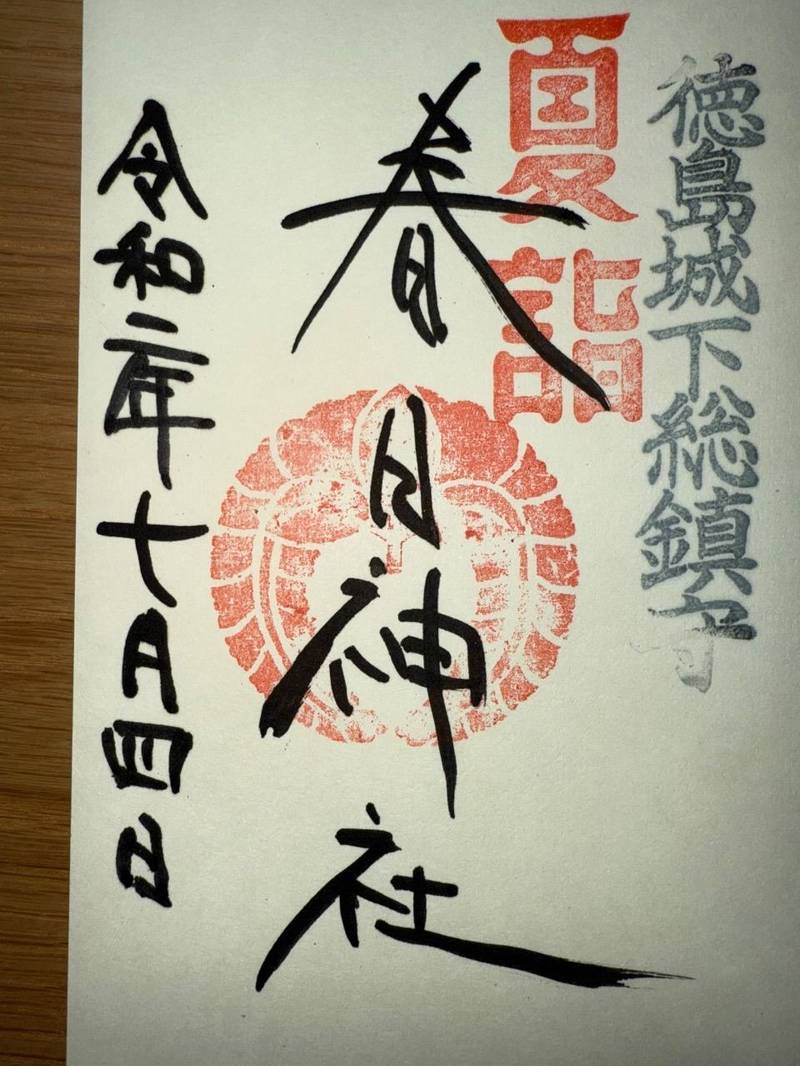 徳島城下総鎮守
夏詣
春日神社
令和二年七月四日